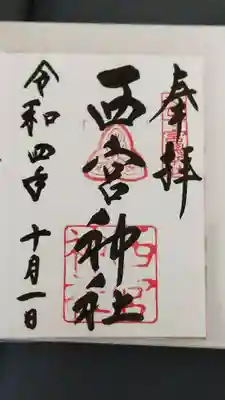 奉拝
西宮神社
令和四年
十月一日